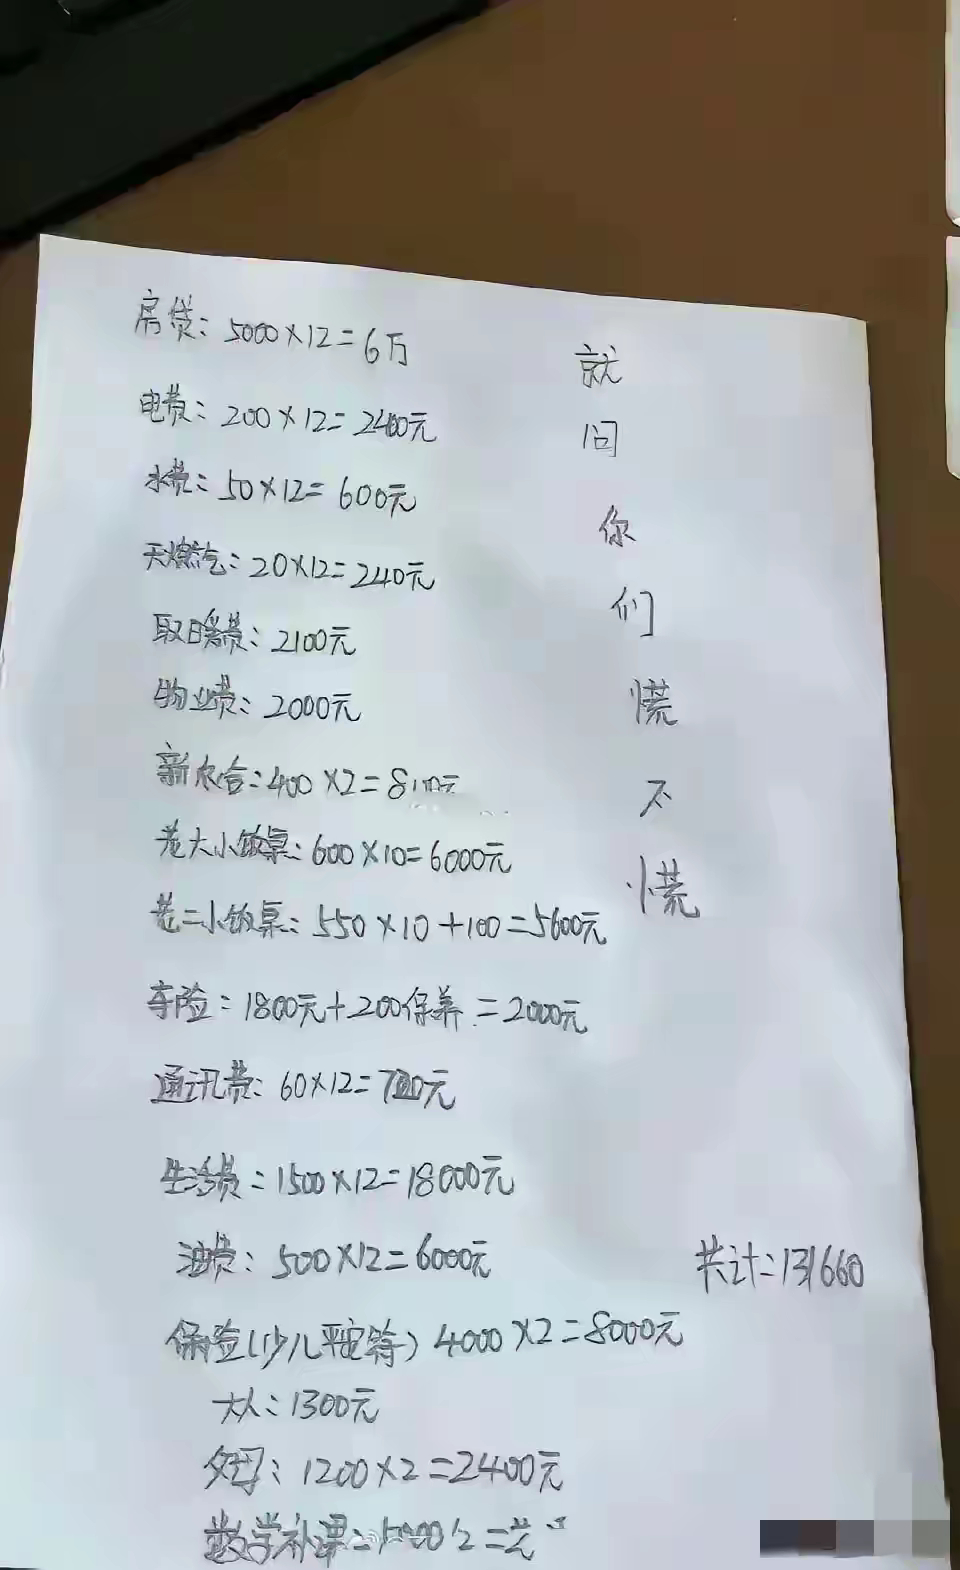 房贷：5000×12=6万
电费：200×12=2400元
水费：50×12=600元
天燃气：20×12=240元
取暖费：2100元
物业费：2000元
新农合：400×2=8
老大小饭桌：600×10=6000元
老二小饭桌：550×10+100=5600元
车险：1800元+200保养=2000元
通讯费：60×12=720元
生活费：1500×12=18000元
油费：500×12=6000元
保险(少儿平安等) 4000×2=8000元
大人：1300元
父母：1200×2=2400元
数学补课：
就
问
你
们
慌
不
慌
共计：131660